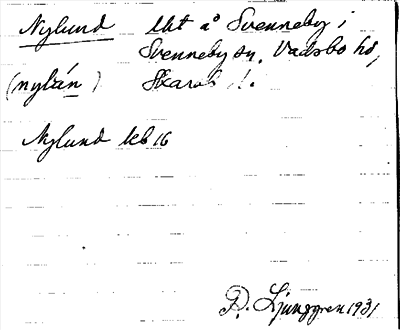 Nylund lht å Svenneby i
Svenneby sn, Vadsbo hd,
(nylán) Skarab. l.
Nylund Jeb 16
D. Ljunggren 1931